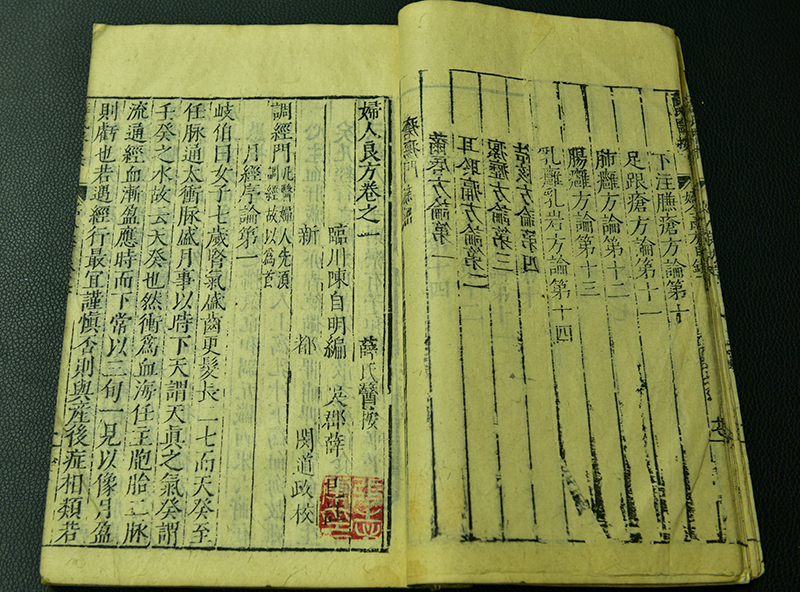 下注臁瘡方論第十
足跟瘡方論第十一
肺癰方論第十二
腸癰方論第十三
乳癰乳岩方論第十四
婦人良方卷之一　薛氏醫按
臨川陳自明編　吳郡薛己
新都　閔道政校
調經門　此醫婦人先須
調經故以爲首
月經序論第一
岐伯曰女子七歲腎氣盛齒更髮長二七而天癸至
任脉通太衝脉盛月事以時下天謂天真之氣癸謂
壬癸之水故云天癸也然衝爲血海任主胞胎二脉
流通經血漸盈應時而下常以三旬一見以像月盈
則虧也若遇經行最宜謹慎否則與產後症相類若